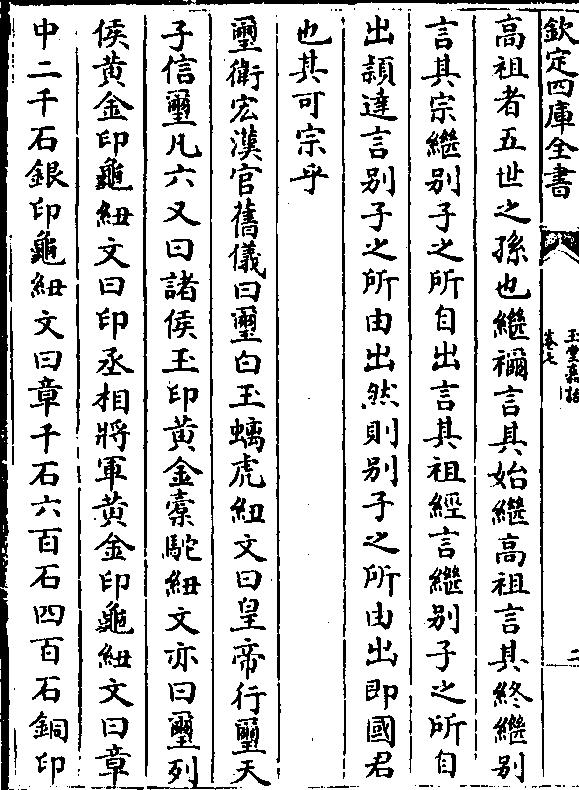 欽定四庫全書
玉堂嘉話
卷七
二
高祖者五世之孫也繼禰言其始繼高祖言其終繼别
言其宗繼别子之所自出言其祖經言繼别子之所自
出頴達言别子之所由出然則别子之所由出即國君
也其可宗乎
璽衛宏漢官舊儀曰璽白玉螭虎紐文曰皇帝行璽天
子信璽凡六又曰諸侯王印黄金槖駝紐文亦曰璽列
侯黄金印龜紐文曰印丞相將軍黄金印龜紐文曰章
中二千石銀印龜紐文曰章千石六百石四百石銅印